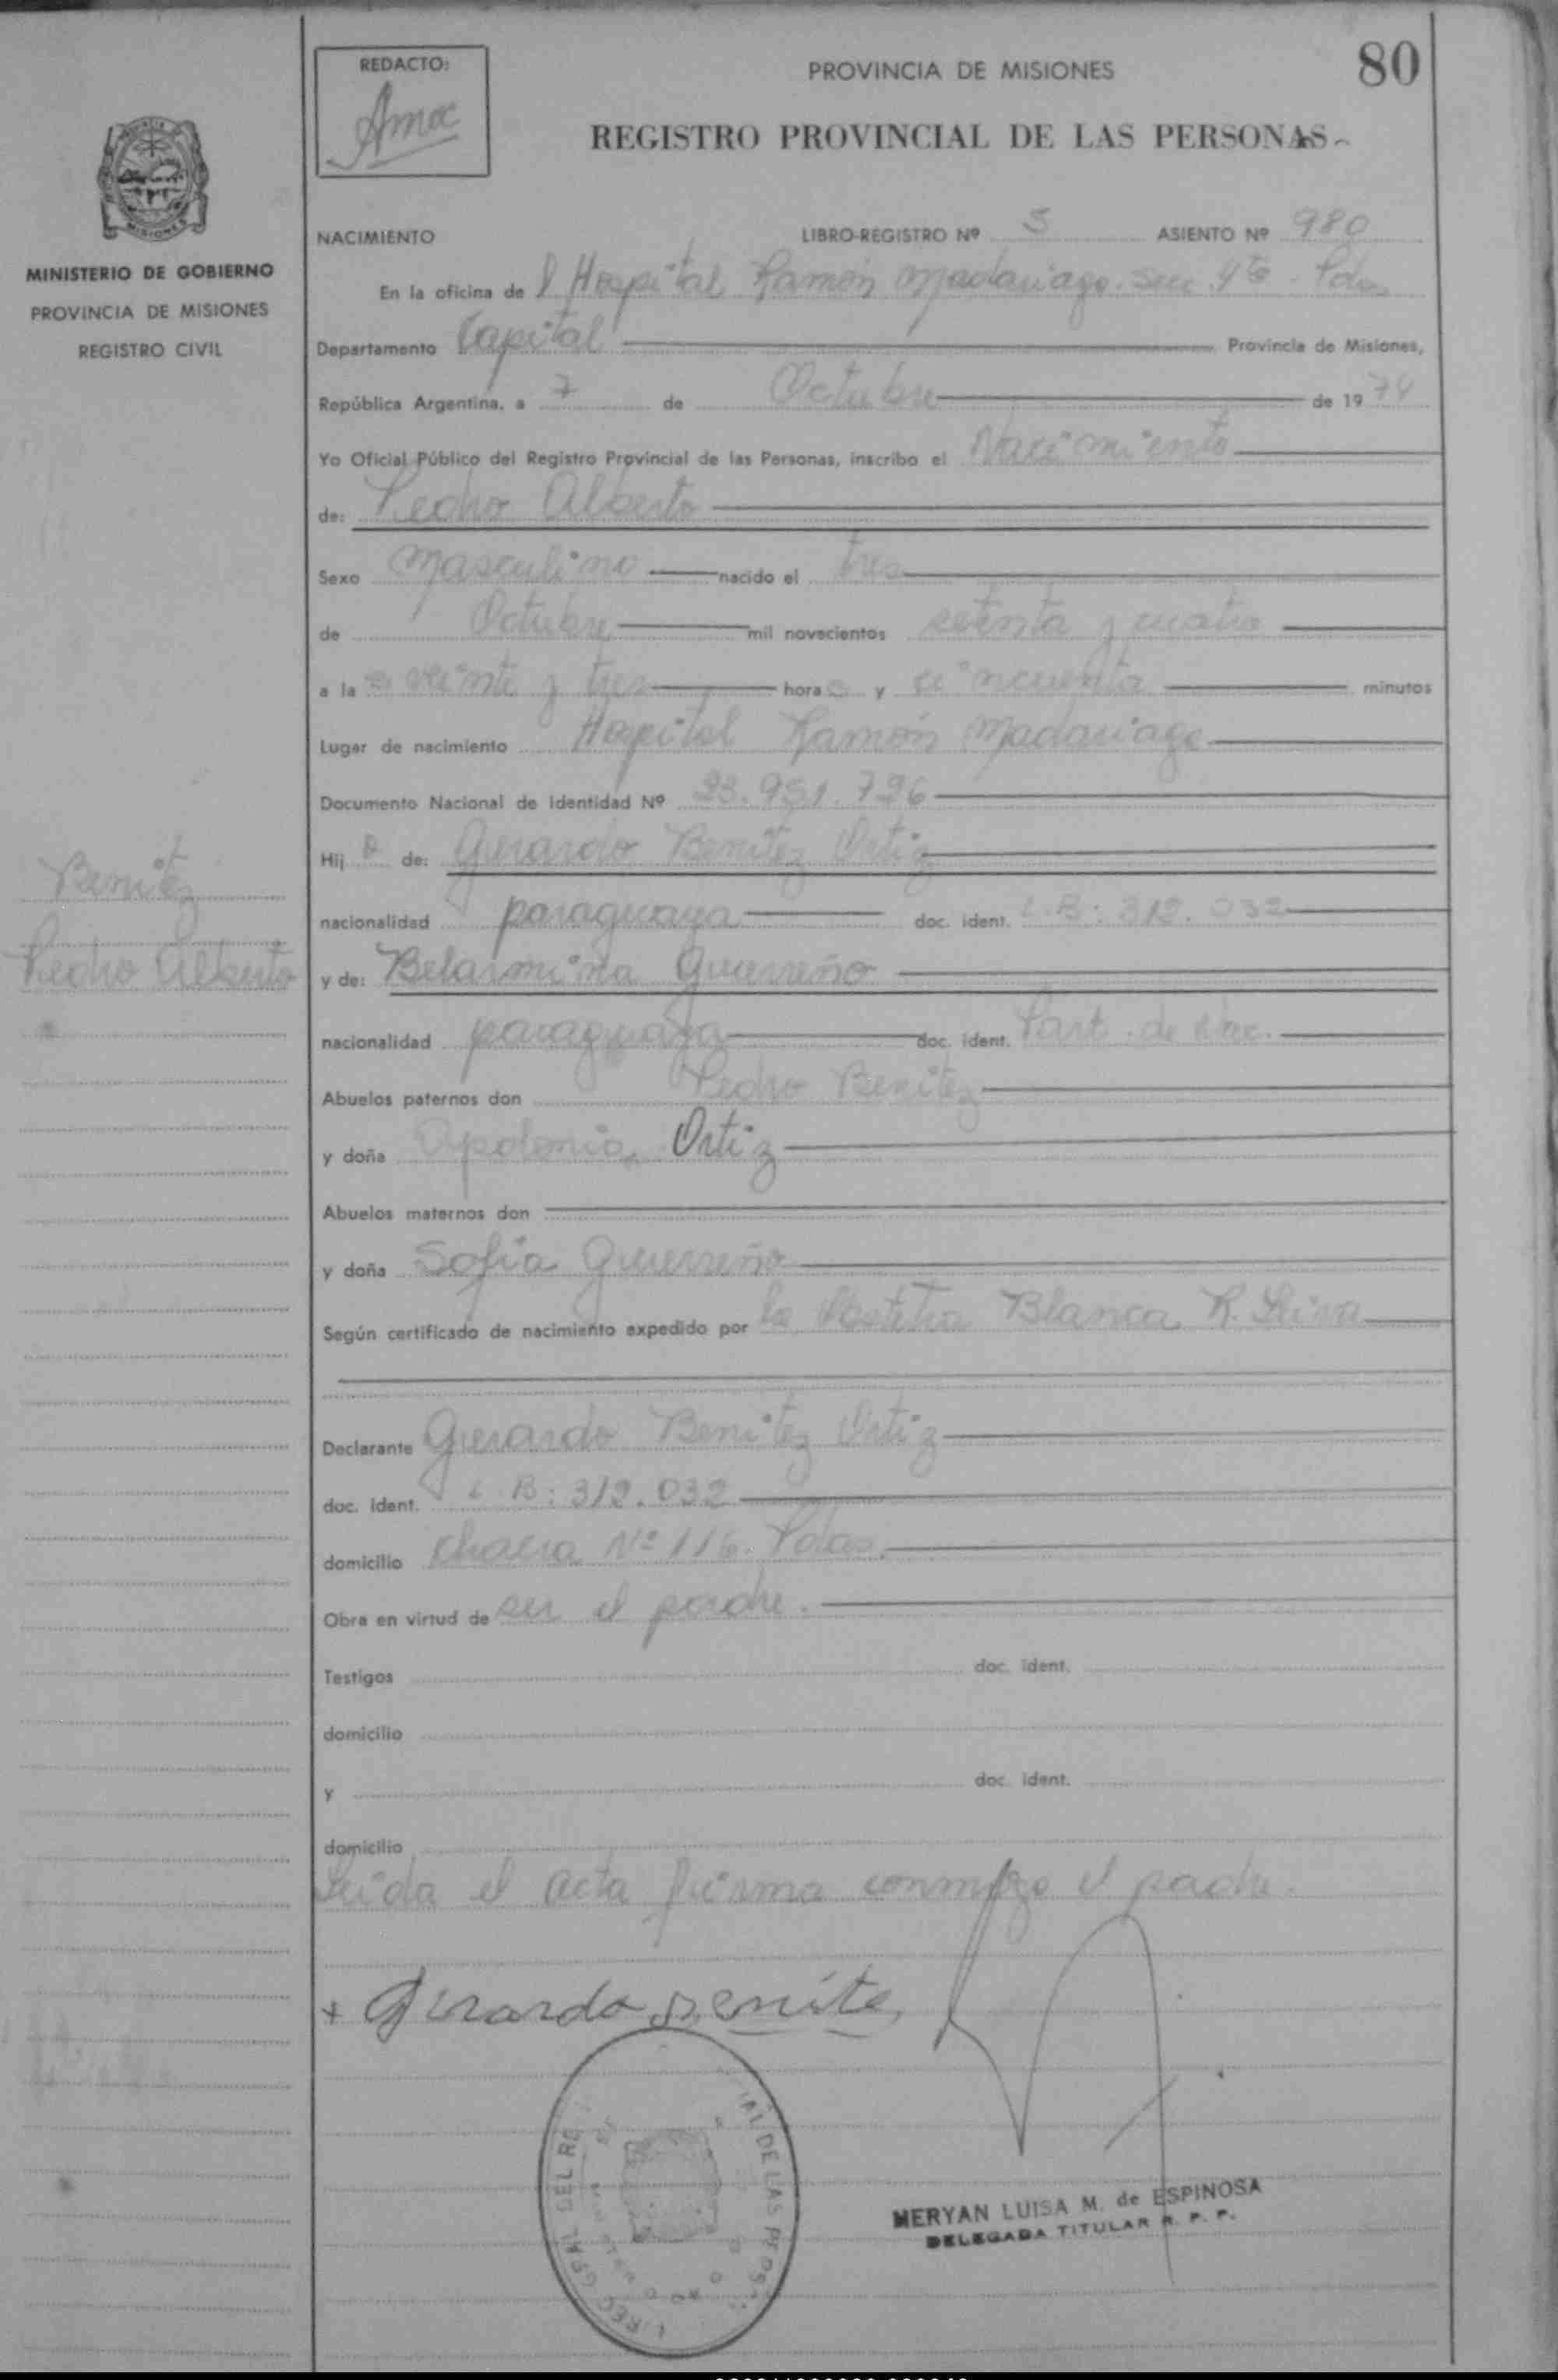 REDACTO:
PROVINCIA DE MISIONES
80
REGISTRO PROVINCIAL DE LAS PERSONAS
MINISTERIO DE GOBIERNO
PROVINCIA DE MISIONES
REGISTRO CIVIL
NACIMIENTO LIBRO-REGISTRO Nº 5 ASIENTO Nº 980
En la oficina de l Hospital Ramón Madariaga. Secc. 4ta. Pdas
Departamento Capital Provincia de Misiones,
República Argentina, a 7 de Octubre de 1974
Yo Oficial Público del Registro Provincial de las Personas, inscribo el Nacimiento
de: Pedro Alberto
Sexo Masculino nacido el tres
de Octubre mil novecientos setenta y cuatro
a la s veinte y tres hora s y cincuenta minutos
Lugar de nacimiento Hospital Ramón Madariaga
Documento Nacional de Identidad Nº 23.951.726
Hij o de: Gerardo Benitez Ortiz
Benitez
nacionalidad paraguaya doc. ident. C.B: 312.032
Pedro Alberto
y de: Belarmina Guerreño
nacionalidad paraguaya doc. ident. Part. de Nac.
Abuelos paternos don Pedro Benitez
y doña Apolonia Ortiz
Abuelos maternos don
y doña Sofia Guerreño
Según certificado de nacimiento expedido por la Partera Blanca R. Leiva
Declarante Gerardo Benitez Ortiz
doc. ident. C.B: 312.032
domicilio chacra Nº 116. Pdas.
Obra en virtud de ser el padre.
Testigos doc. ident.
domicilio
y doc. ident.
domicilio
Leida el acta firma conmigo el padre.
+ Gerardo Benite
MERYAN LUISA M. de ESPINOSA
DELEGADA TITULAR R. P. P.